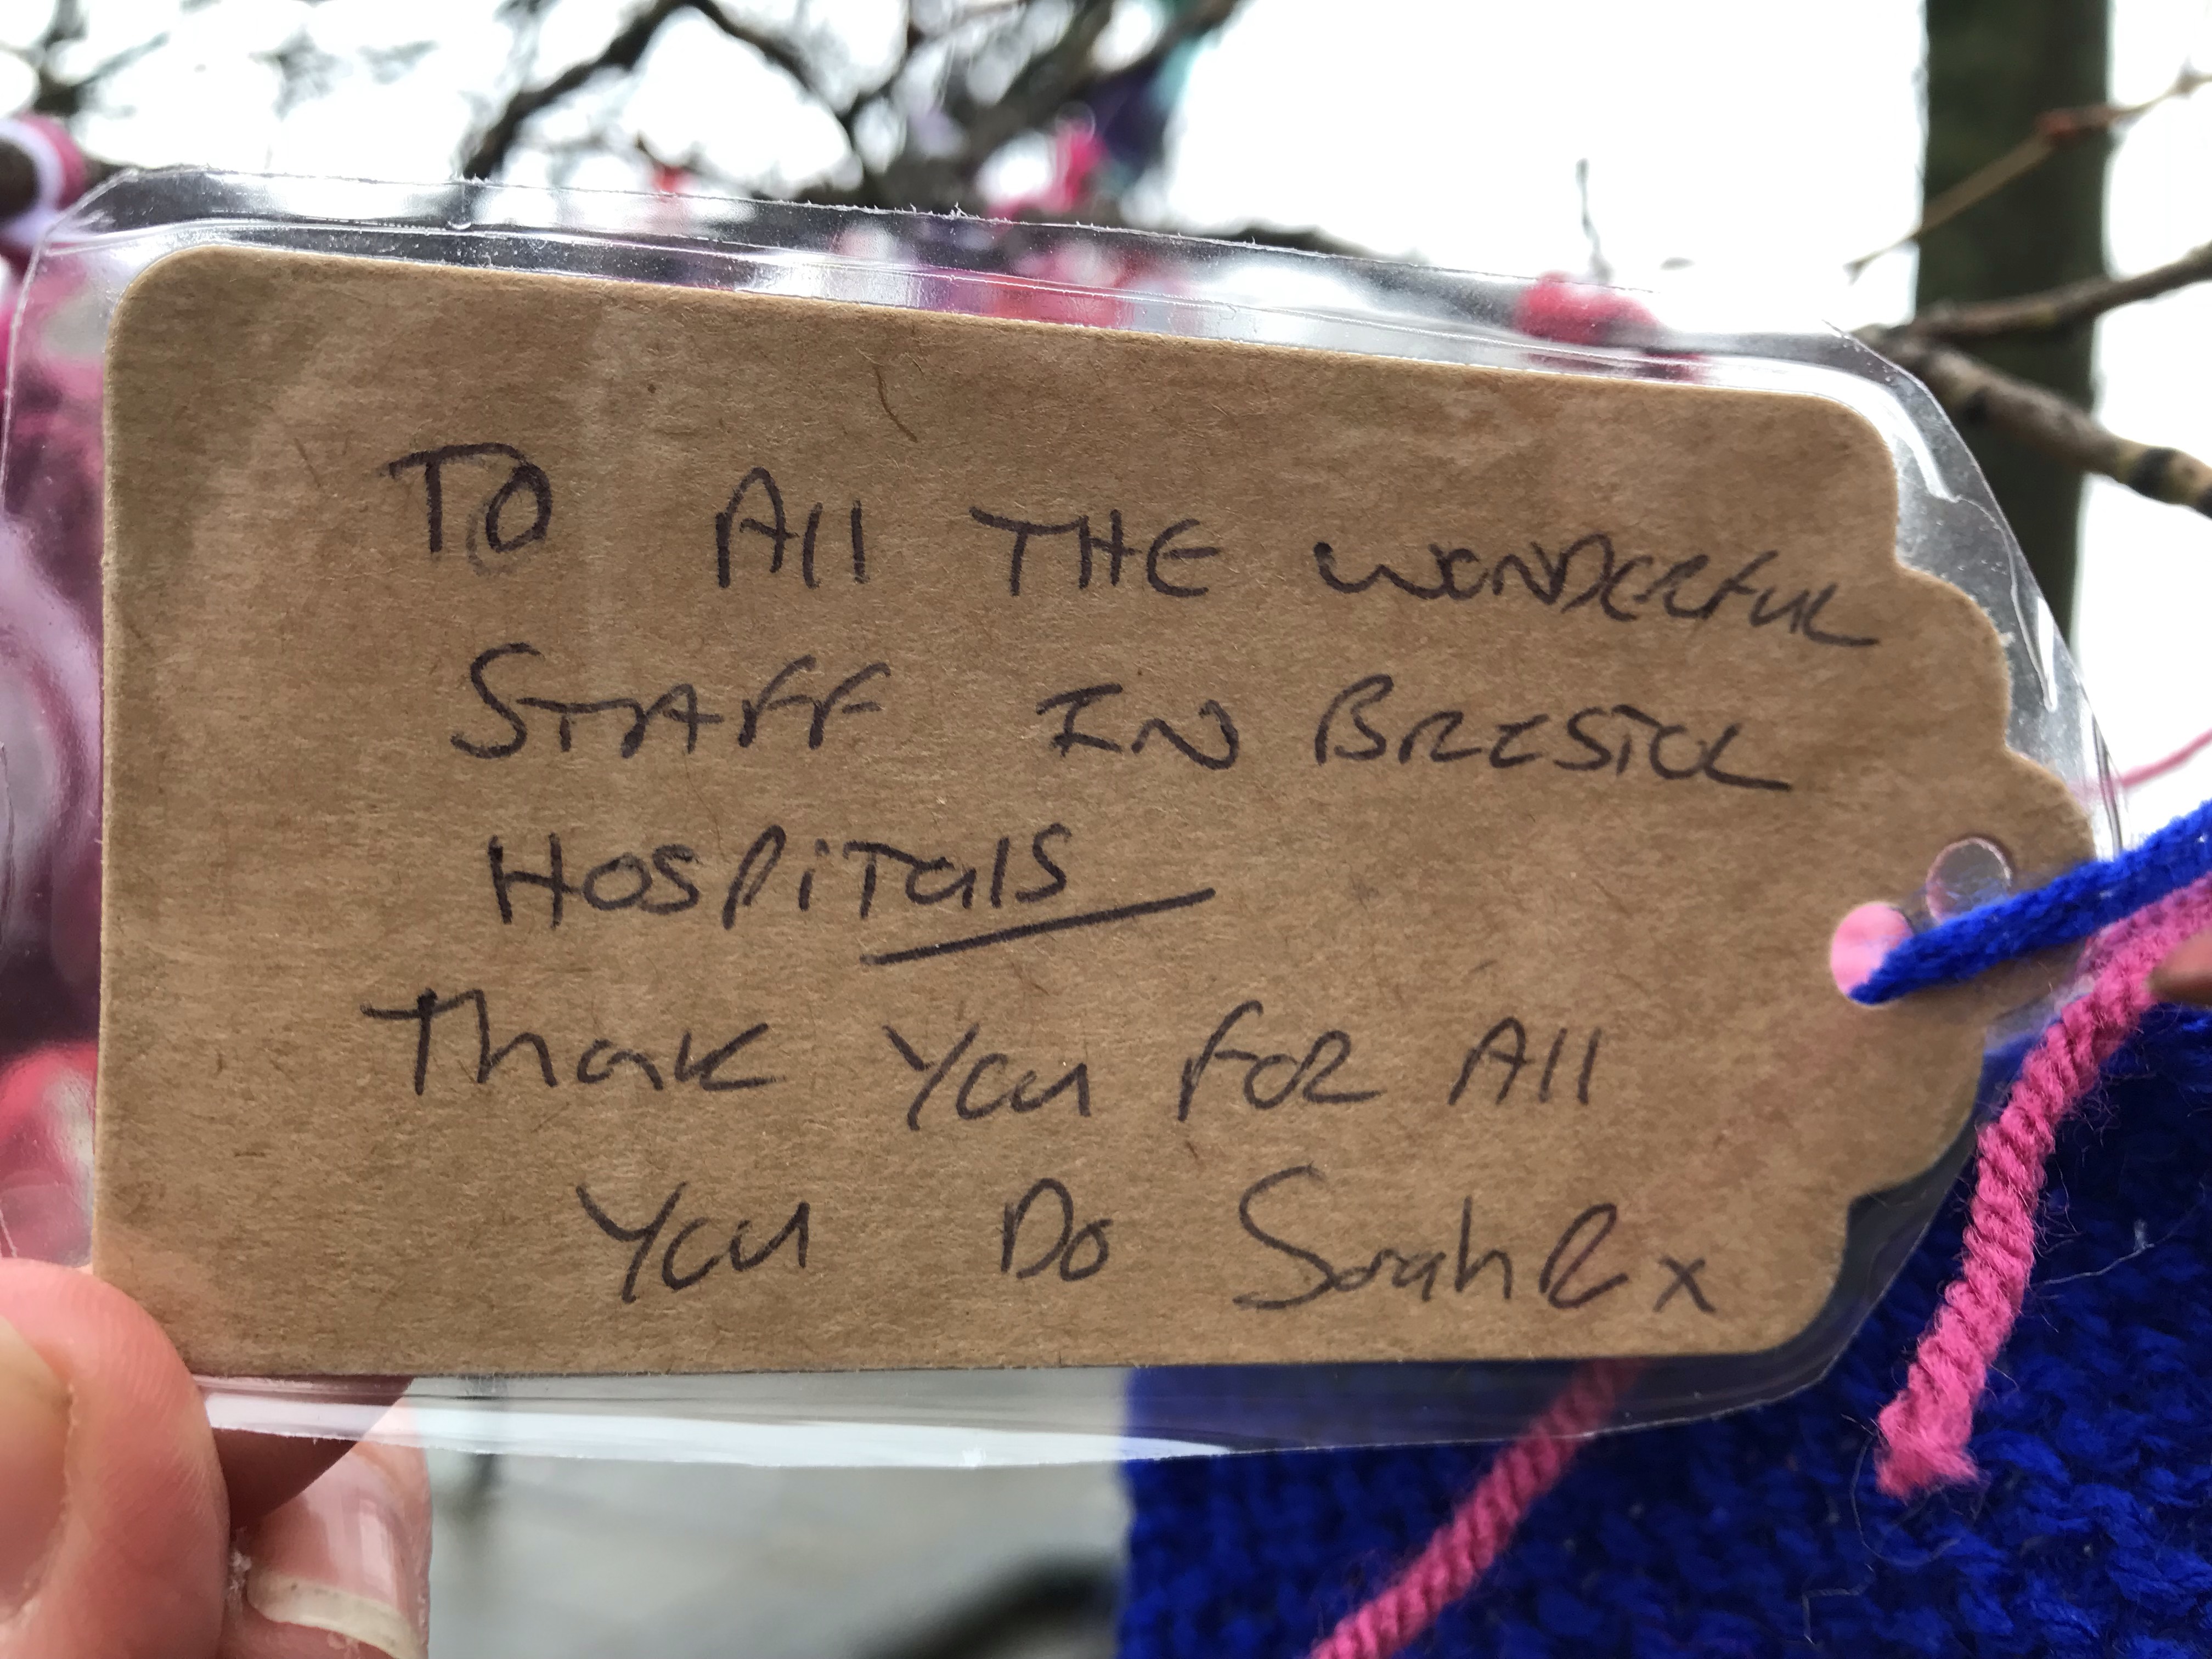 TO All THE WONDERFUL
STAFF IN BRISTOL
HOSPiTalS
Thak You FOR All
You Do Sarah R x